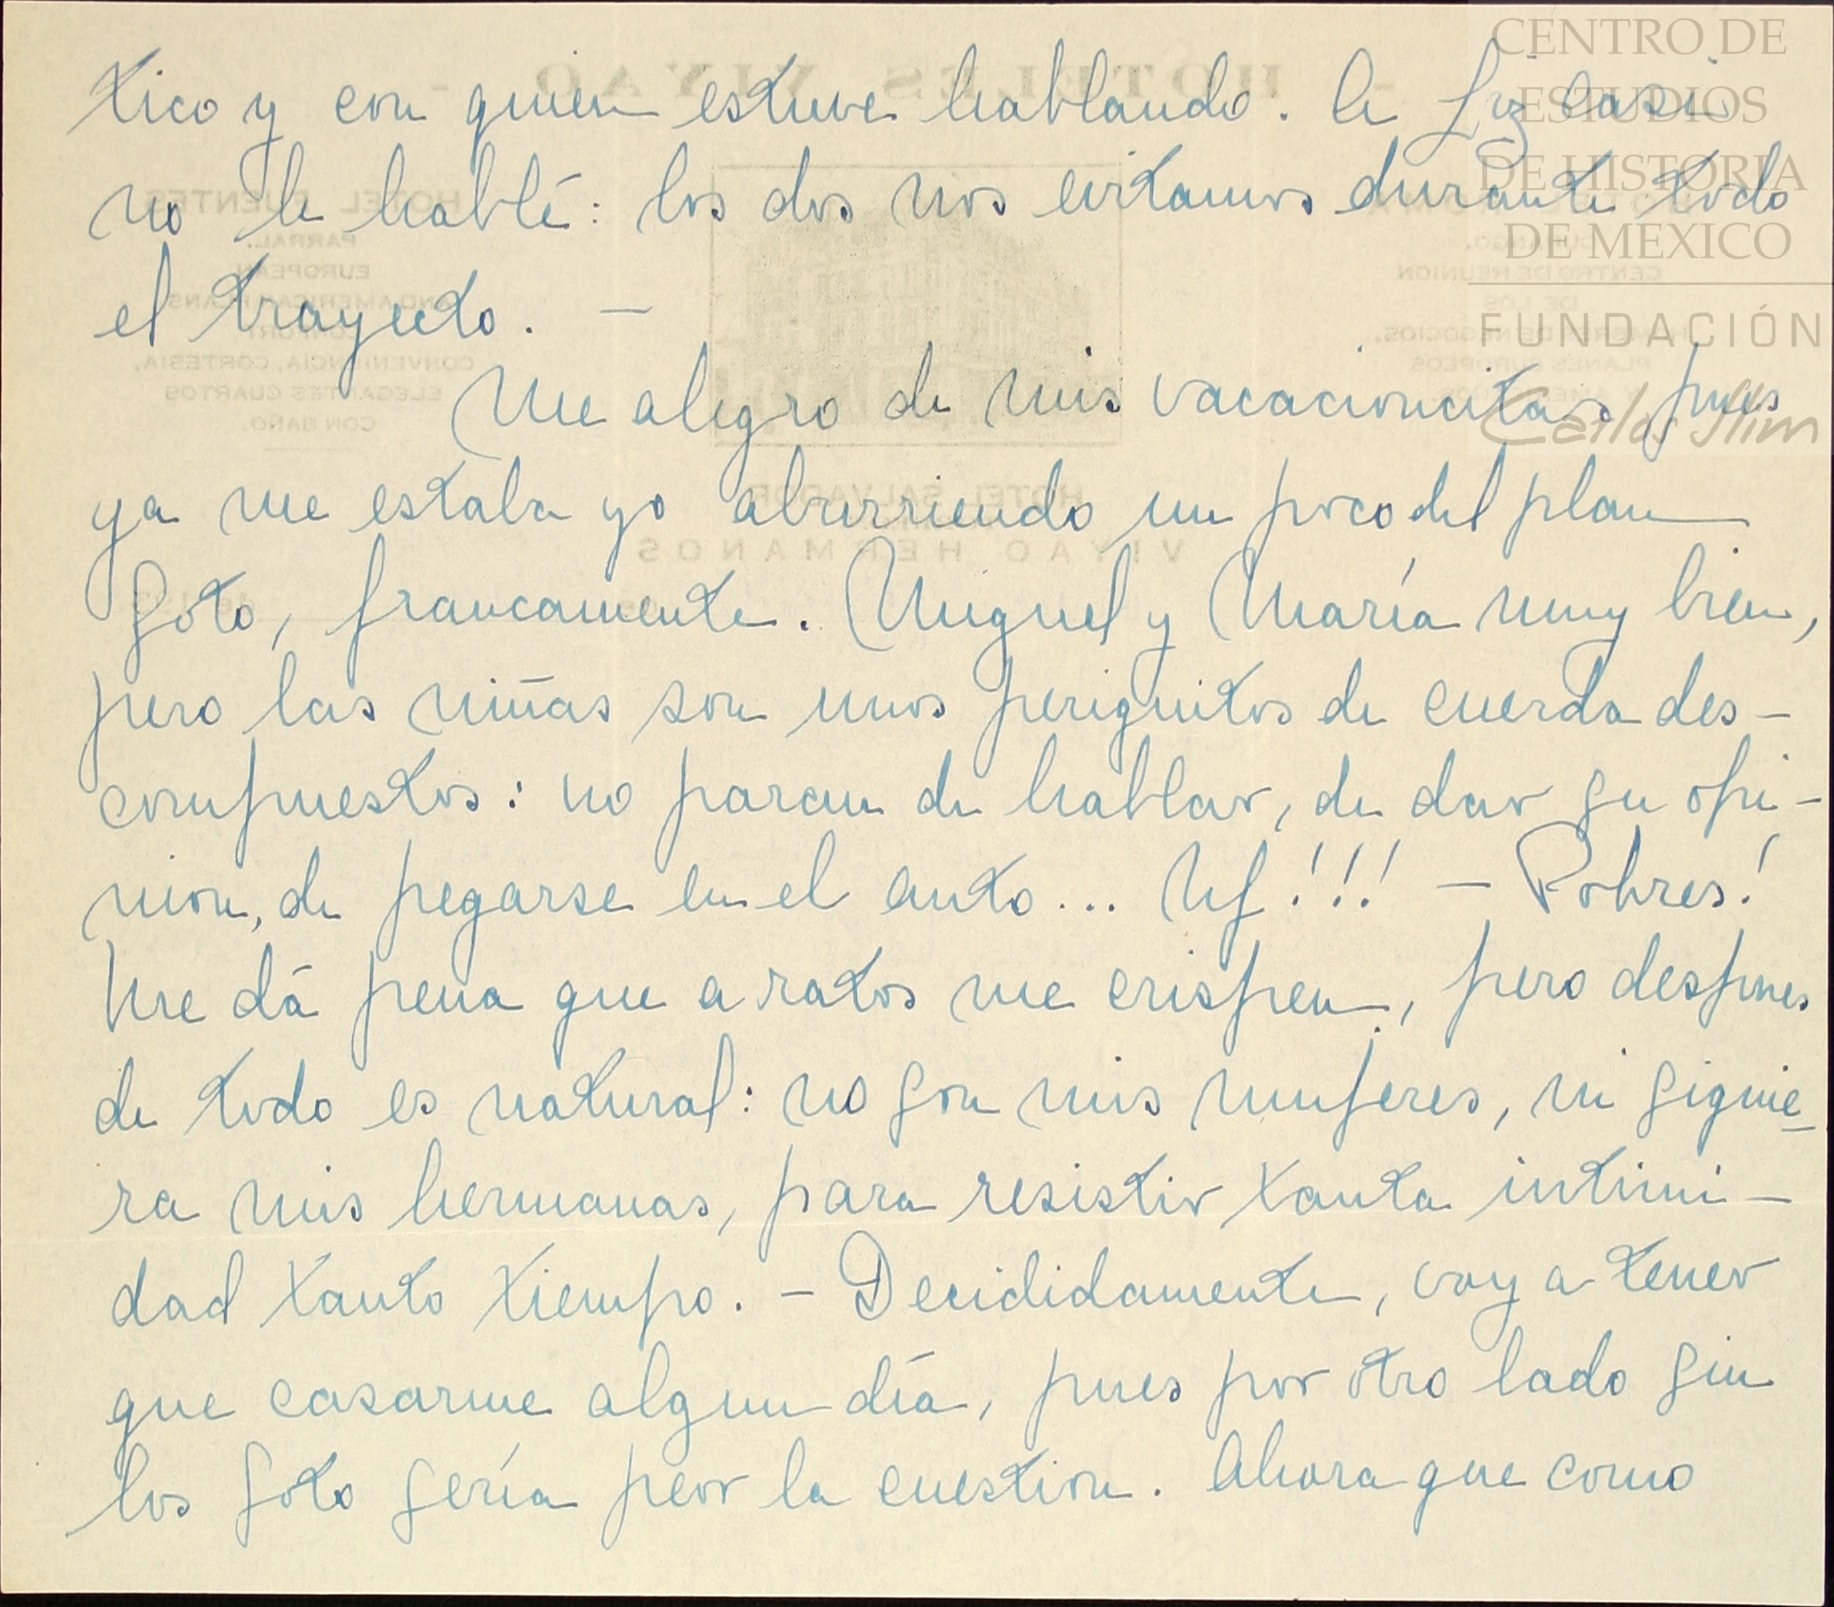 tico y con quien estuve hablando. A Liz casi
no le hablé: los dos nos evitamos durante todo
el trayecto. —
Me alegro de mis vacacioncitas pues
ya me estaba yo aburriendo un poco del plan
Soto, francamente. Miguel y María muy bien,
pero las niñas son unos periquitos de cuerda des-
compuestos: no paran de hablar, de dar su opi-
nion, de pegarse en el auto... Uf!!! — Pobres!
Me dá pena que a ratos me crispen, pero despues
de todo es natural: no son mis mujeres, ni siquie
ra mis hermanas, para resistir tanta intimi-
dad tanto tiempo. — Decididamente, voy a tener
que casarme algun día, pues por otro lado sin
los Soto sería peor la cuestion. Ahora que como
CENTRO DE
ESTUDIOS
DE HISTORIA
DE MEXICO
FUNDACIÓN
Carlos Slim
HOTELES VIYAO
HOTEL FUENTES
PARRAL.
EUROPEAN
AND AMERICAN PLANS
CONVENIENCIA, CORTESIA,
ELEGANTES CUARTOS
CON BAÑO.
CENTRO DE REUNION
DE LOS
PLANES EUROPEOS
HOTEL SALVADOR
VIYAO HERMANOS